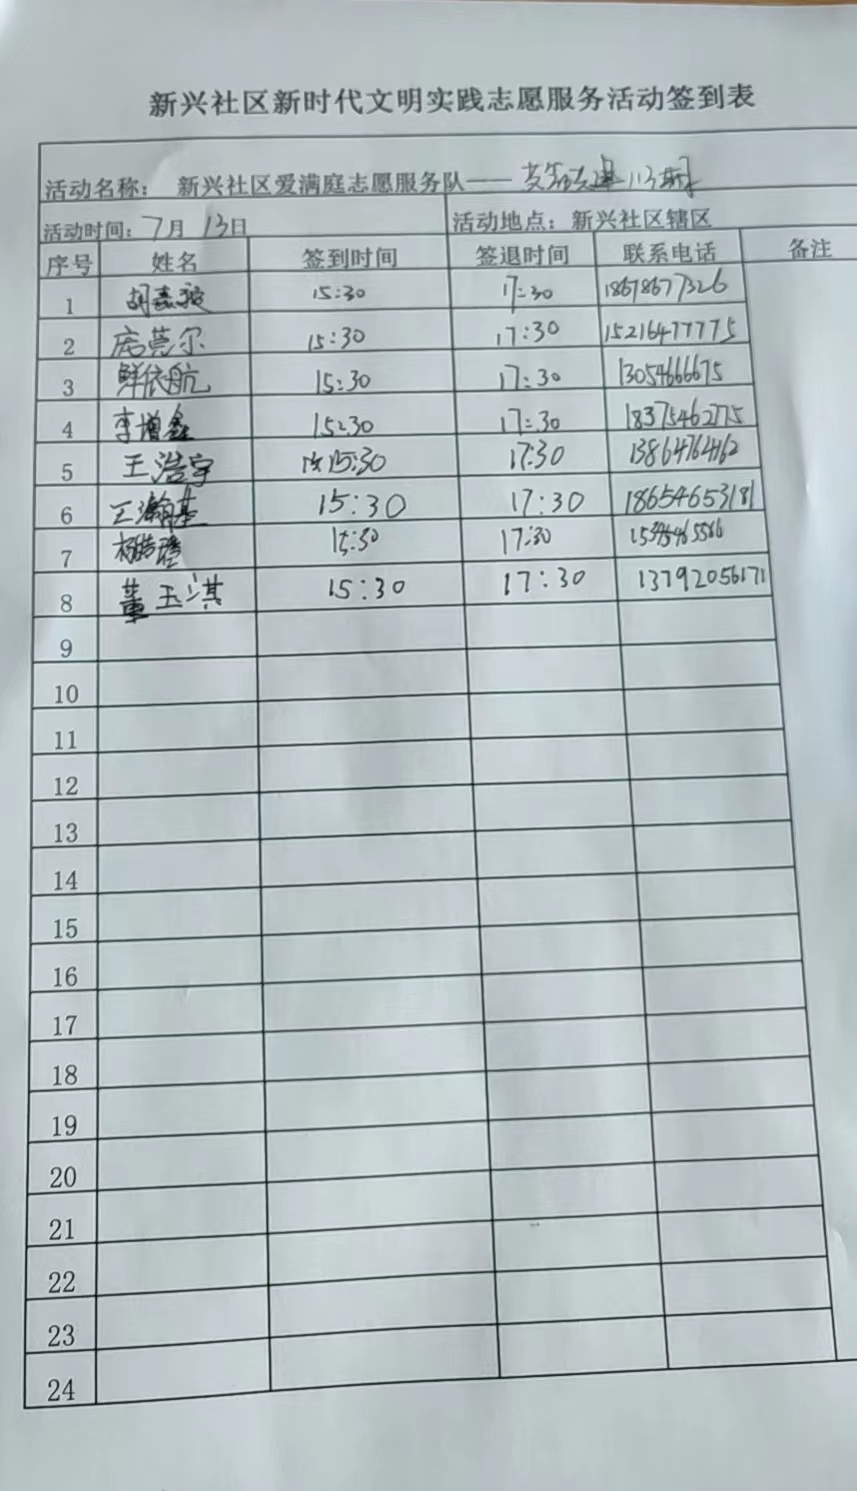 新兴社区新时代文明实践志愿服务活动签到表
活动名称： 新兴社区爱满庭志愿服务队——
活动时间：7月13日 活动地点：新兴社区辖区
序号 姓名 签到时间 签退时间 联系电话 备注
1 15:30 17:30 18678677326
2 庞莞尔 15:30 17:30 15216477775
3 鲜依航 15:30 17:30 13054666675
4 李增鑫 15:30 17:30 18375462775
5 王浩宇 15:30 17:30
6 王瀚基 15:30 17:30 18654653181
7 15:30 17:30
8 董玉淇 15:30 17:30 13792056171
9
10
11
12
13
14
15
16
17
18
19
20
21
22
23
24